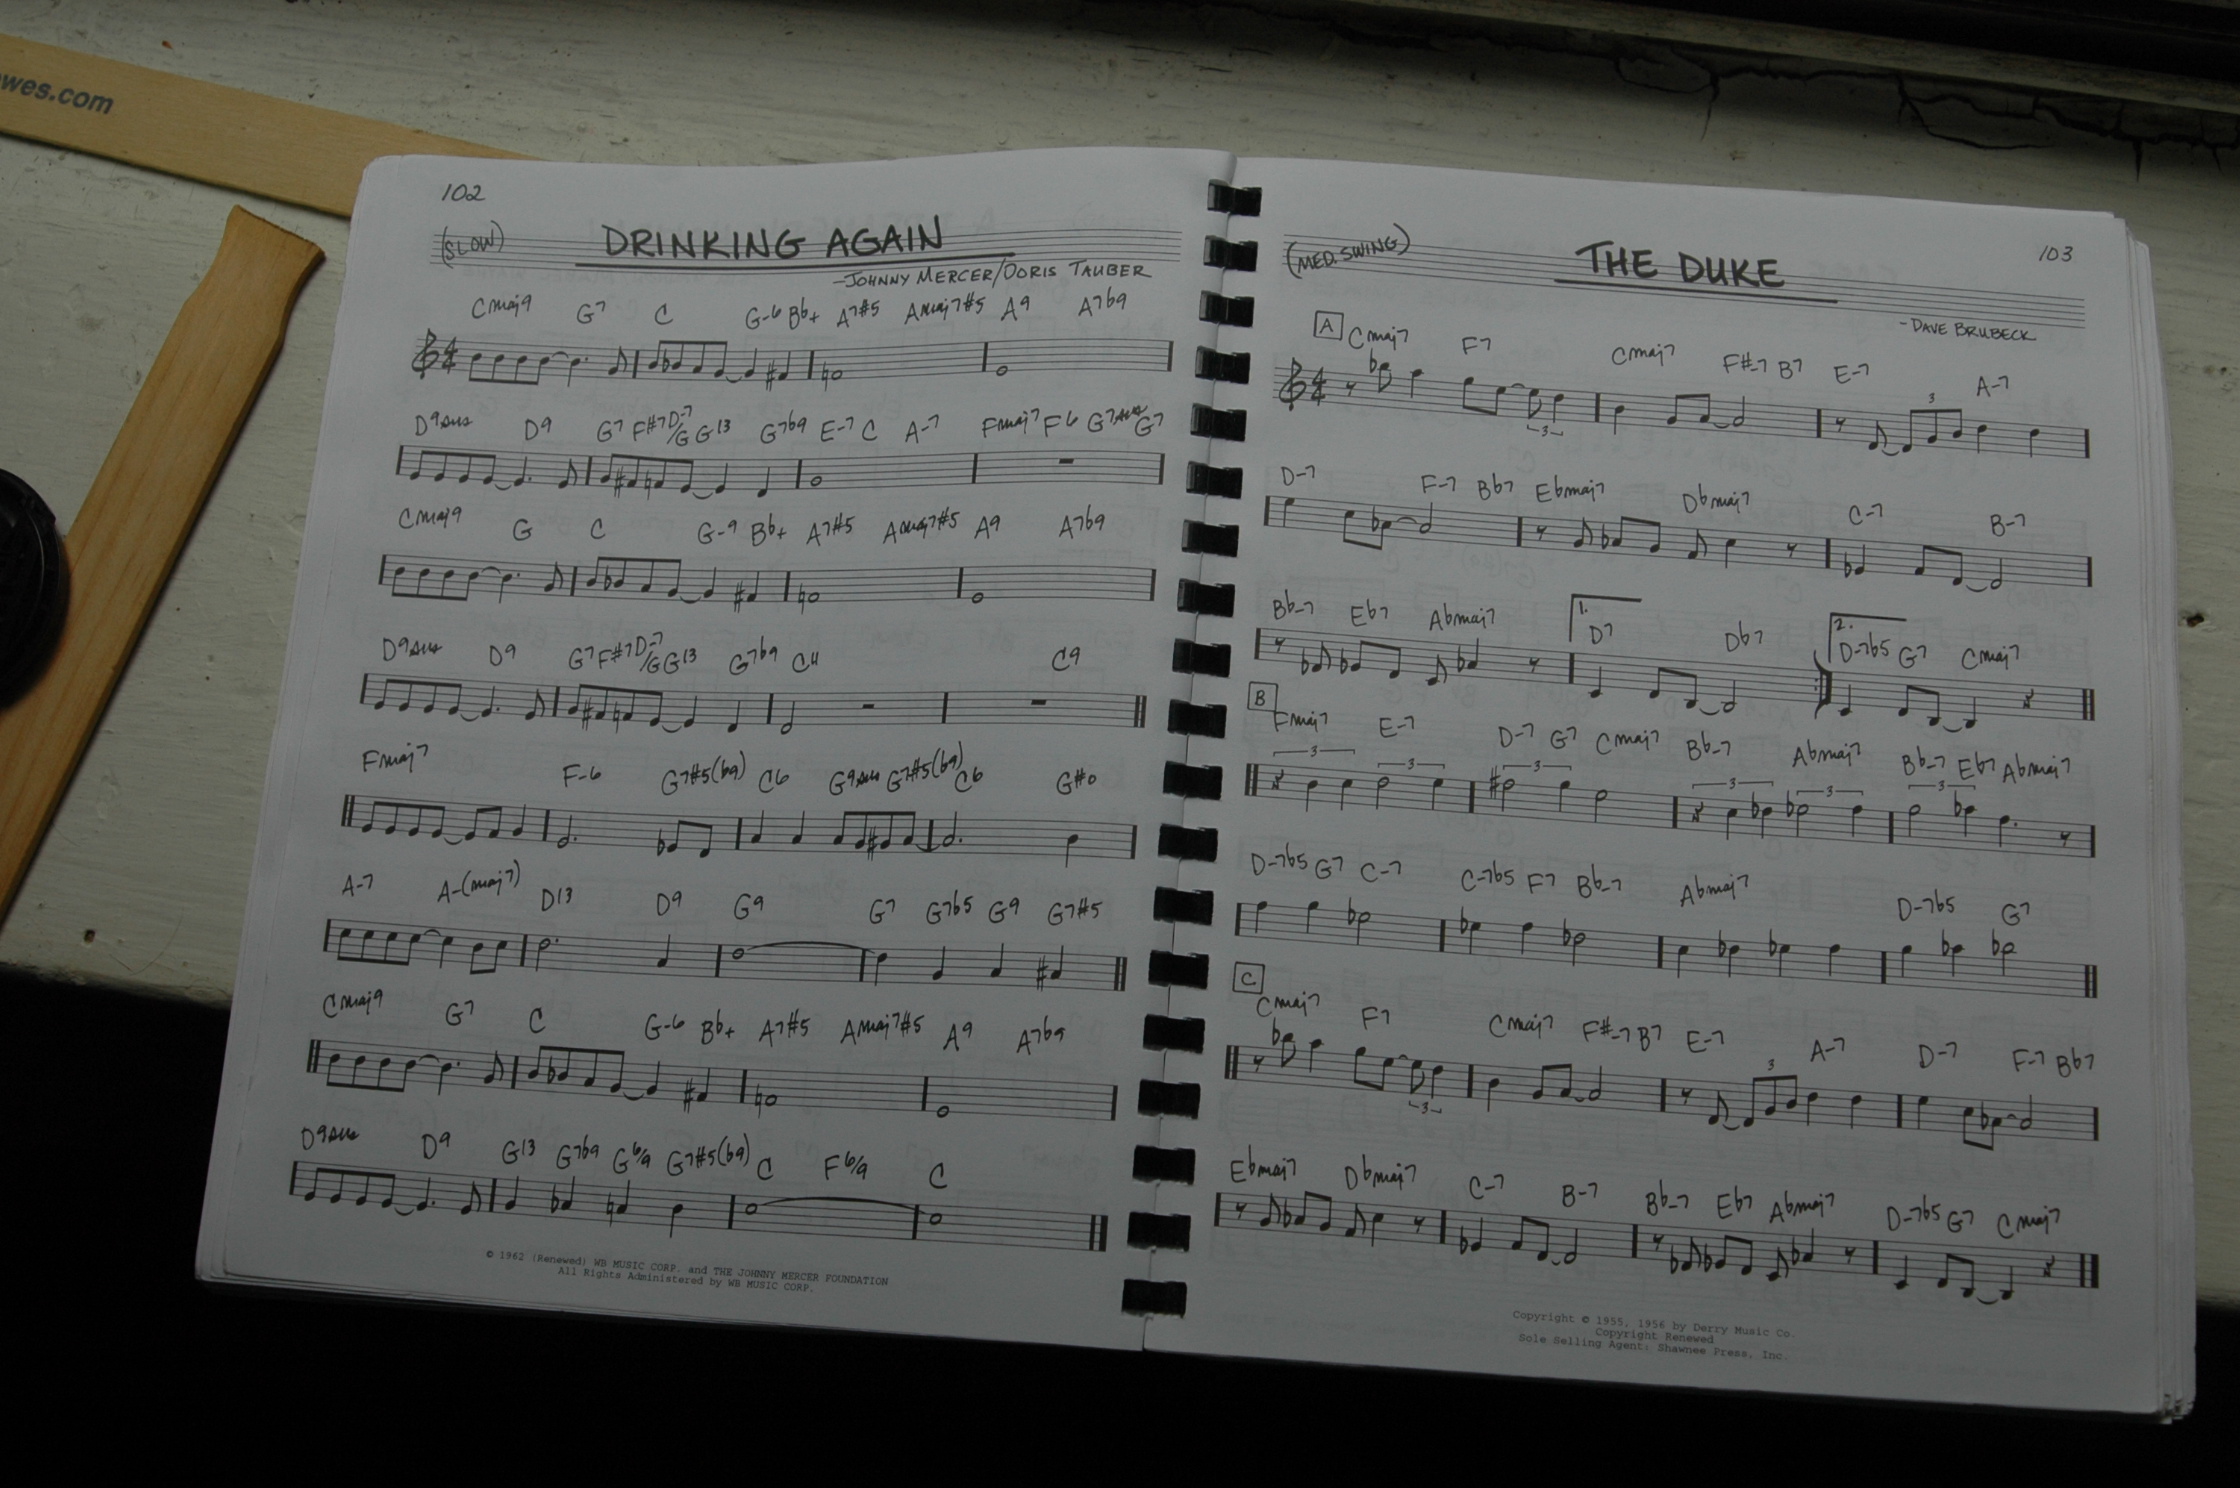 wes.com
102
(SLOW)
DRINKING AGAIN
-JOHNNY MERCER/DORIS TAUBER
Cmaj9 G7 C G-6 Bb+ A7#5 Amaj7#5 A9 A7b9
D9sus D9 G7 F#7 D-7/G G13 G7b9 E-7 C A-7 Fmaj7 F6 G7sus G7
Cmaj9 G C G-9 Bb+ A7#5 Amaj7#5 A9 A7b9
D9sus D9 G7 F#7 D-7/G G13 G7b9 C11 C9
Fmaj7 F-6 G7#5(b9) C6 G9sus G7#5(b9) C6 G#o
A-7 A-(maj7) D13 D9 G9 G7 G7b5 G9 G7#5
Cmaj9 G7 C G-6 Bb+ A7#5 Amaj7#5 A9 A7b9
D9sus D9 G13 G7b9 G6/9 G7#5(b9) C F6/9 C
© 1962 (Renewed) WB MUSIC CORP. and THE JOHNNY MERCER FOUNDATION
All Rights Administered by WB MUSIC CORP.
103
(MED. SWING)
THE DUKE
-DAVE BRUBECK
A Cmaj7 F7 Cmaj7 F#-7 B7 E-7 A-7
3 3
D-7 F-7 Bb7 Ebmaj7 Dbmaj7 C-7 B-7
Bb-7 Eb7 Abmaj7 1. D7 Db7 2. D-7b5 G7 Cmaj7
B Fmaj7 E-7 D-7 G7 Cmaj7 Bb-7 Abmaj7 Bb-7 Eb7 Abmaj7
3 3 3 3 3 3
D-7b5 G7 C-7 C-7b5 F7 Bb-7 Abmaj7 D-7b5 G7
C Cmaj7 F7 Cmaj7 F#-7 B7 E-7 A-7 D-7 F-7 Bb7
3 3
Ebmaj7 Dbmaj7 C-7 B-7 Bb-7 Eb7 Abmaj7 D-7b5 G7 Cmaj7
Copyright © 1955, 1956 by Derry Music Co.
Copyright Renewed
Sole Selling Agent: Shawnee Press, Inc.